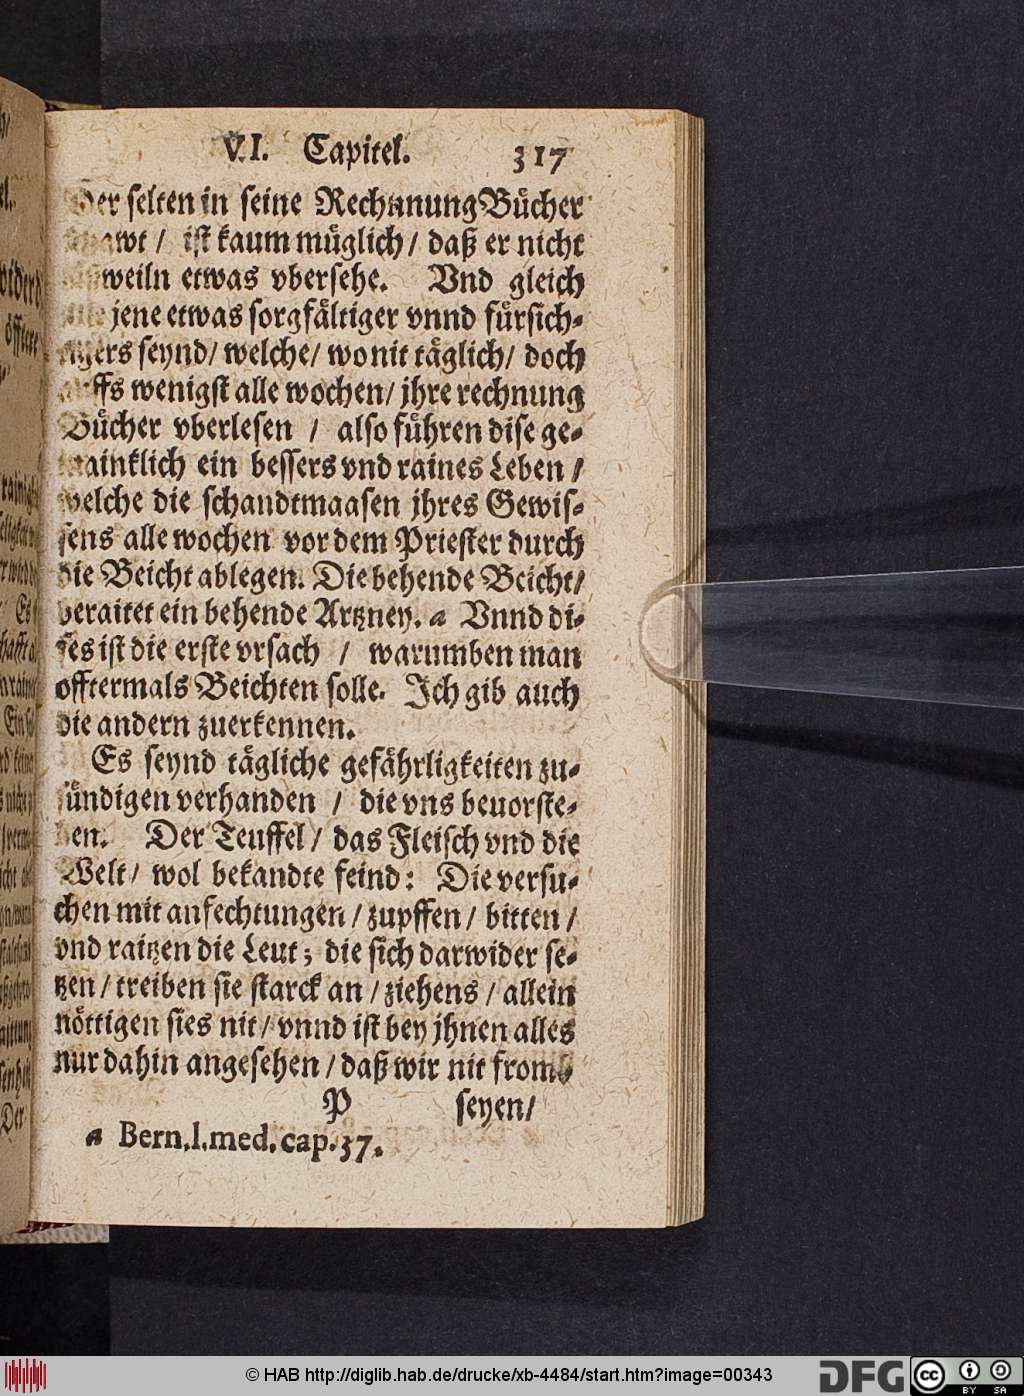 VI. Capitel. 317
Der selten in seine Rechnung Bücher
schawt / ist kaum müglich / daß er nicht
bißweiln etwas vbersehe. Vnd gleich
wie jene etwas sorgfältiger vnnd fürsich-
tigers seynd / welche / wo nit täglich / doch
auffs wenigst alle wochen / jhre rechnung
Bücher vberlesen / also führen dise ge-
mainklich ein bessers vnd raines Leben /
welche die schandtmaasen jhres Gewis-
sens alle wochen vor dem Priester durch
die Beicht ablegen. Die behende Beicht /
beraitet ein behende Artzney. a Vnnd di-
ses ist die erste vrsach / warumben man
offtermals Beichten solle. Ich gib auch
die andern zuerkennen.
Es seynd tägliche gefährligkeiten zu-
sündigen verhanden / die vns beuorste-
hen. Der Teuffel / das Fleisch vnd die
Welt / wol bekandte feind: Die versu-
chen mit anfechtungen / zupffen / bitten /
vnd raitzen die Leut; die sich darwider se-
tzen / treiben sie starck an / ziehens / allein
nöttigen sies nit / vnnd ist bey jhnen alles
nur dahin angesehen / daß wir nit fromb
P seyen /
a Bern. l. med. cap. 37.
© HAB http://diglib.hab.de/drucke/xb-4484/start.htm?image=00343
DFG
cc BY SA